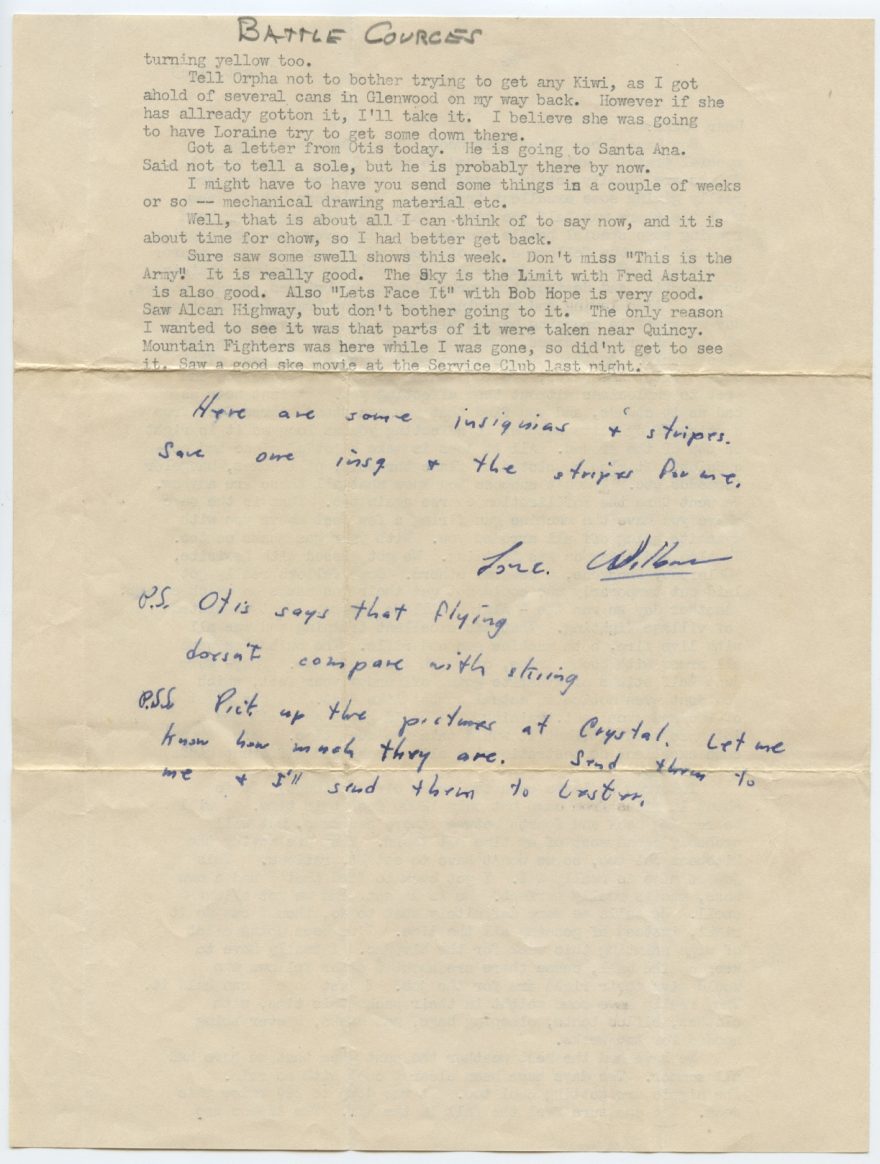 BATTLE COURCES
turning yellow too.
Tell Orpha not to bother trying to get any Kiwi, as I got
ahold of several cans in Glenwood on my way back. However if she
has allready gotton it, I'll take it. I believe she was going
to have Loraine try to get some down there.
Got a letter from Otis today. He is going to Santa Ana.
Said not to tell a sole, but he is probably there by now.
I might have to have you send some things in a couple of weeks
or so -- mechanical drawing material etc.
Well, that is about all I can think of to say now, and it is
about time for chow, so I had better get back.
Sure saw some swell shows this week. Don't miss "This is the
Army" It is really good. The Sky is the Limit with Fred Astair
is also good. Also "Lets Face It" with Bob Hope is very good.
Saw Alcan Highway, but don't bother going to it. The only reason
I wanted to see it was that parts of it were taken near Quincy.
Mountain Fighters was here while I was gone, so did'nt get to see
it. Saw a good ske movie at the Service Club last night.
Here are some insignias & stripes.
Save one insg & the stripes for me.
Love. Wilbur
P.S. Otis says that flying
doesn't compare with skiing
P.S.S. Pick up the pictures at Crystal. Let me
know how much they are. Send them to
me & I'll send them to Lester.